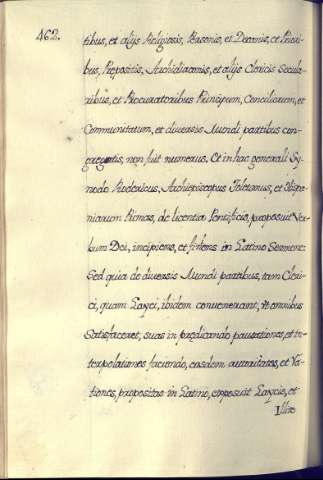 462.
tibus, et alijs Religiosis, Personis, et Decanis, et Priori-
bus, Prepositis, Archidiaconis, et alijs Clericis Secula-
ribus, et Procuratoribus Principum, Conciliorum, et
Communitatum, et diversis Mundi partibus con-
gregatis, non fuit numerus. Et in hac generali Sy-
nodo Rodericus, Archiepiscopus Toletanus, et Hispa-
niarum Primas, de licentia Pontificis, proposuit Ver-
bum Dei, incipiens, et finiens in Latino Sermone:
Sed quia de diversis Mundi partibus, tam Cleri-
ci, quam Layci, ibidem convenerant, ut omnibus
Satisfaceret, suas in predicando pausationes, et in-
terpolationes faciendo, easdem auctoritates, et Ra-
tiones, propositas in Latino, exposuit Laycis, et
Illite